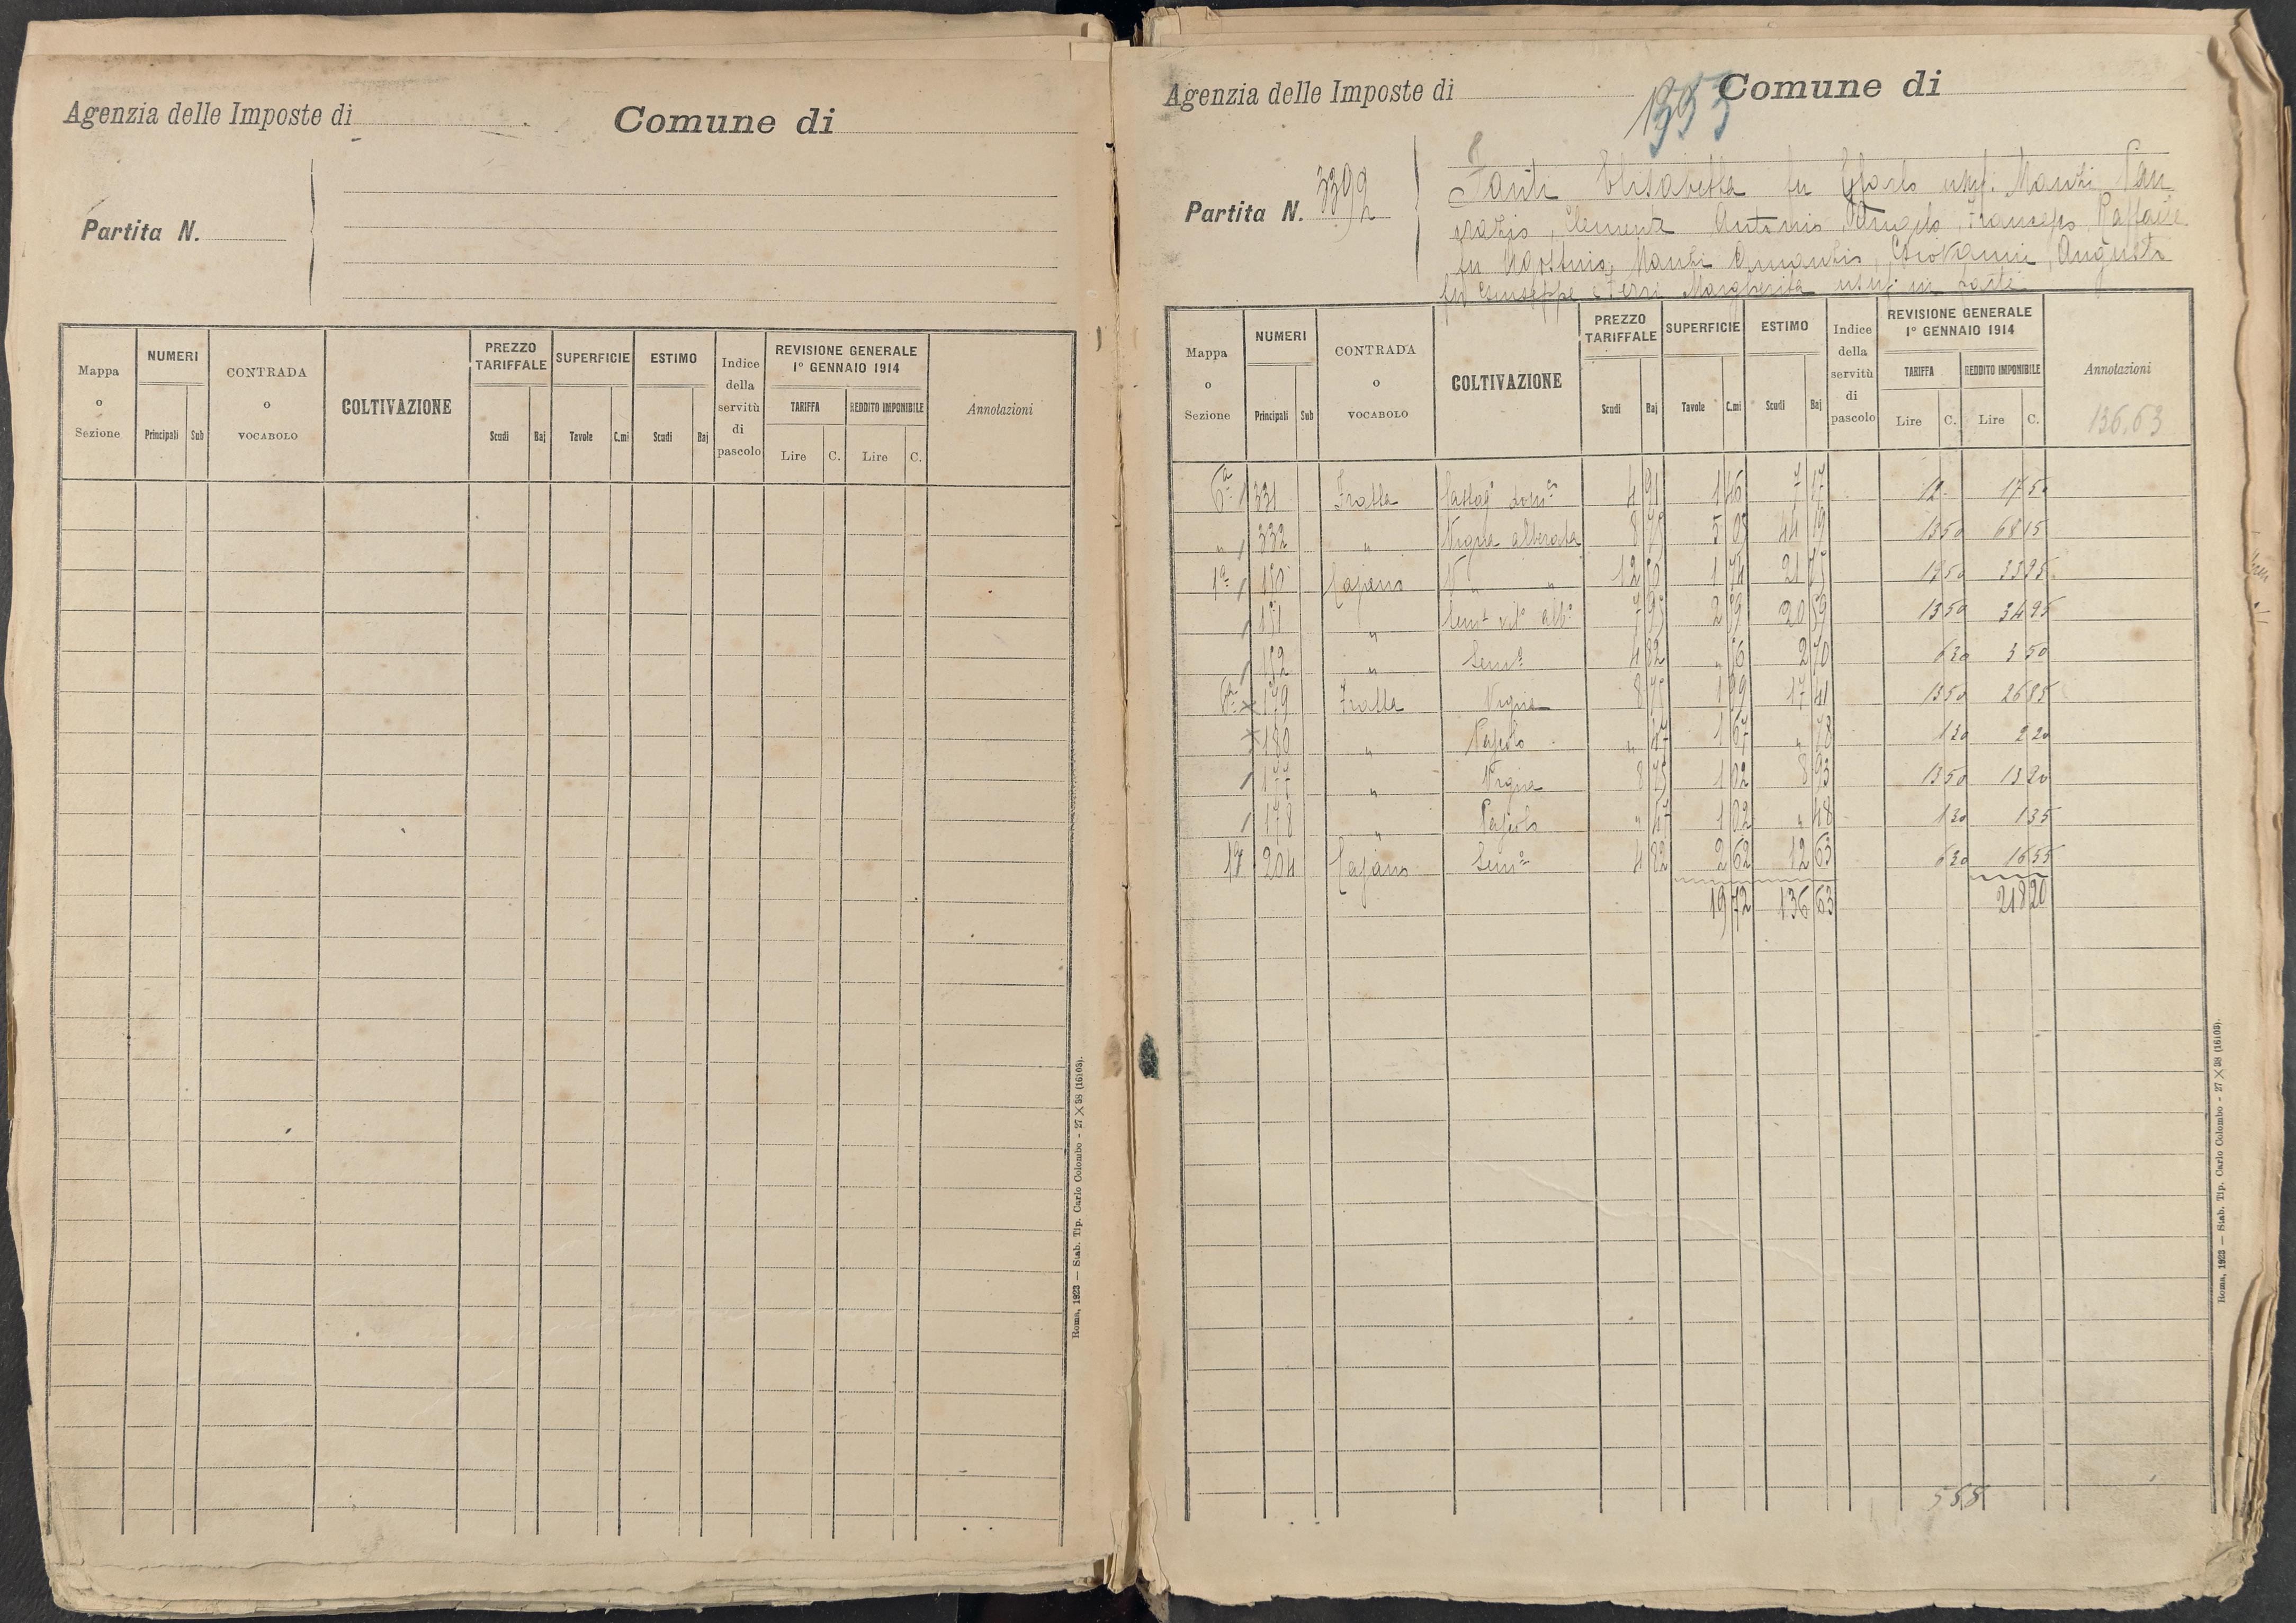 Agenzia delle Imposte di
Comune di
Partita N.
Mappa o Sezione
NUMERI
Principali Sub
CONTRADA o VOCABOLO
COLTIVAZIONE
PREZZO TARIFFALE
Scudi Baj
SUPERFICIE
Tavole C.mi
ESTIMO
Scudi Baj
Indice della servitù di pascolo
REVISIONE GENERALE
1° GENNAIO 1914
TARIFFA
Lire C.
REDDITO IMPONIBILE
Lire C.
Annotazioni
Roma, 1923 — Stab. Tip. Carlo Colombo - 27 × 38 (16103).
Agenzia delle Imposte di
Comune di
Partita N. 3392
Santi Elisabetta fu usuf. Manzi Pan
crazio, Clemente Antonio Angelo, Francesco, Raffaele
fu Agostino, Manzi Amanzio, Giovanni, Augusto
fu Giuseppe e Terri Margherita usuf. in parte
Mappa o Sezione
NUMERI
Principali Sub
CONTRADA o VOCABOLO
COLTIVAZIONE
PREZZO TARIFFALE
Scudi Baj
SUPERFICIE
Tavole C.mi
ESTIMO
Scudi Baj
Indice della servitù di pascolo
REVISIONE GENERALE
1° GENNAIO 1914
TARIFFA
Lire C.
REDDITO IMPONIBILE
Lire C.
Annotazioni
136.63
6ª 331 Fratta 4 91 1 46 7 17 12 17 50
" 332 " Vigna alberata 8 75 5 05 44 19 13 50 68 15
1ª 150 Cajano " " 12 50 1 74 21 75 17 50 33 95
151 " Semº vitº albº 7 95 2 59 20 59 13 50 34 95
152 " Semº 4 82 " 56 2 70 6 30 3 50
6ª 179 Fratta Vigna 8 75 1 99 17 41 13 50 26 85
180 " Pascolo " 47 1 67 " 78 1 30 2 20
177 " Vigna 8 75 1 02 8 93 13 50 13 80
178 " Pascolo " 47 1 02 " 48 1 30 1 35
1ª 204 Cajano Semº 4 82 2 62 12 63 6 30 16 55
19 72 136 63 218 20
Roma, 1923 — Stab. Tip. Carlo Colombo - 27 × 38 (16103).